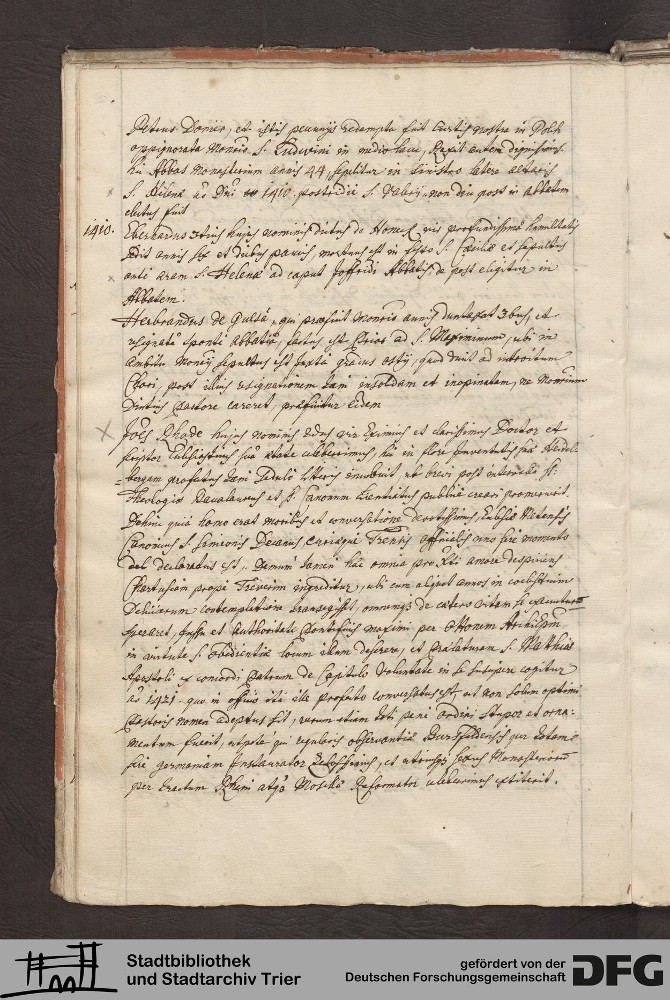 Petrus Donier, et istis pecuniis redempta fuit Curtis nostra in Polch
oppignorata Monrio S. Ludwini in medio lacu, Rexit autem dignissim9
hic Abbas Monasterium annis 44, sepelitur in sinistro latere altaris
S. Helenæ ao Dni 1410. postridie S. non diu post in abbatem
electus fuit
1410. Eberardus 3tius hujus nominis dictus de Homeck vir profundissimæ humilitatis
sedit annis sex et diebus paucis, mortuus est in festo S. Cæciliæ et sepultus
ante aram S. Helenæ ad caput Joffridi Abbatis, de post eligitur in
Abbatem.
Herbrandus de Gulsa, qui præfuit Monrio annis duntaxat 3bus, et
resignata sponte abbatia, factus est Prior ad S. Maximinum, ubi in
ambitu Monrii sepultus est juxta gradus ostii, quod ducit ad introitum
Chori, post illius resignationem tam insolidam et inopinatam, ne Monrium
diutius Pastore careret, præficitur eidem
Joes Rhode hujus nominis 2dus vir eximius et clarissimus Doctor et
scriptor Ecclesiasticus sua ætate celeberrimus, hic in flore juventutis suæ Heidel-
bergam profectus tam sedulo litteris incubuit, ut brevi post intervallo St.
Theologiæ Bacalaureus et S. Canonum Licentiatus publice creari promeruit.
Dehinc quia homo erat moribus et conversatione devotissimus, Ecclesiæ Metensis
Canonicus S. Simeonis Decanus Curiæque Trevris Officialis uno fere momento
declaratus est, demum tamen hæc omnia pro Xti amore despiciens
Carthusiam prope Treverim ingreditur, ubi cum aliquot annos in coelestium
deliciarum contemplatione transegisset, omnemque de cætero vitam se exacturum
speraret, jussu et authoritate Pontificis maximi per Ottonem Archiepum
in virtute S. obedientiæ locum illum deserere, et Prælaturam S. Matthiæ
Apostoli ex concordi Patrum de Capitulo voluntate in se suscipere cogitur
ao 1421. quo in officio ita ille profecto conversatus est, ut non solum optimi
Pastoris nomen adeptus sit, verum etiam toti pene ordini stupor et orna-
mentum fuerit, utpote qui regularis observantiæ Bursfeldensis per totam
fere germaniam Instaurator zelosissimus, et utriusque sexus Monasteriorum
per tractum Rheni atque Mosellæ Reformator celeberrimus extiterit.
Stadtbibliothek
und Stadtarchiv Trier
gefördert von der
Deutschen Forschungsgemeinschaft
DFG